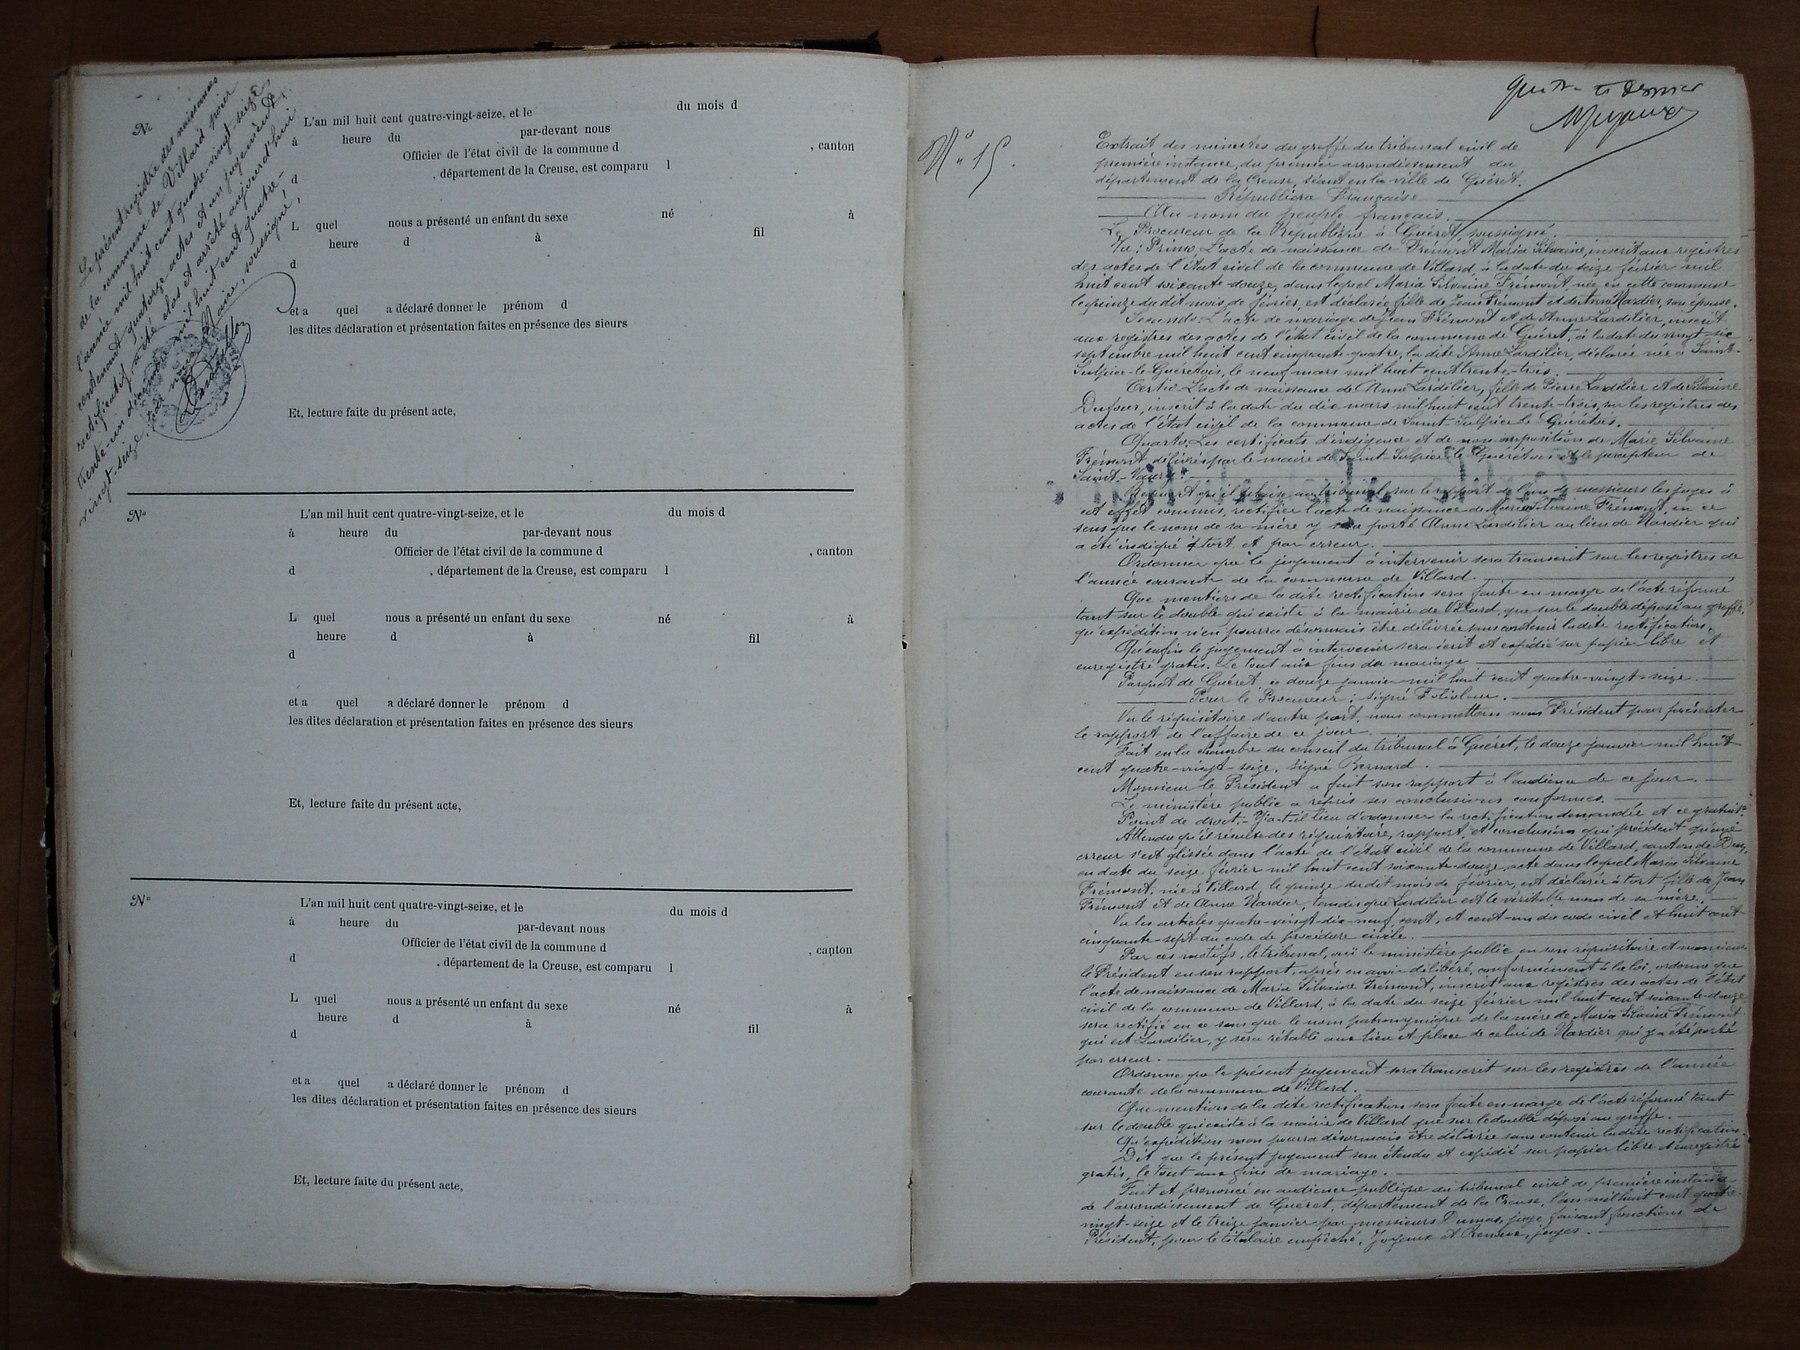 Le présent registre des naissances
de la commune de Villard pour
l'année mil huit cent quatre-vingt-seize
contenant quatorze actes et un jugement
rectificatif a été clos et arrêté aujourd'hui
trente-un décembre mil huit cent quatre-
vingt-seize, par nous Maire, soussigné,
N°
L'an mil huit cent quatre-vingt-seize, et le du mois d
à heure du par-devant nous
Officier de l'état civil de la commune d , canton
d , département de la Creuse, est comparu l
L quel nous a présenté un enfant du sexe né à
heure d à fil
d
et a quel a déclaré donner le prénom d
les dites déclaration et présentation faites en présence des sieurs
Et, lecture faite du présent acte,
N°
L'an mil huit cent quatre-vingt-seize, et le du mois d
à heure du par-devant nous
Officier de l'état civil de la commune d , canton
d , département de la Creuse, est comparu l
L quel nous a présenté un enfant du sexe né à
heure d à fil
d
et a quel a déclaré donner le prénom d
les dites déclaration et présentation faites en présence des sieurs
Et, lecture faite du présent acte,
N°
L'an mil huit cent quatre-vingt-seize, et le du mois d
à heure du par-devant nous
Officier de l'état civil de la commune d , canton
d , département de la Creuse, est comparu l
L quel nous a présenté un enfant du sexe né à
heure d à fil
d
et a quel a déclaré donner le prénom d
les dites déclaration et présentation faites en présence des sieurs
Et, lecture faite du présent acte,
et dernier
N° 15.
Extrait des minutes du greffe du tribunal civil de
première instance, du premier arrondissement du
département de la Creuse, séant en la ville de Guéret.
République Française
Au nom du peuple français.
Le Procureur de la République à Guéret, soussigné.
Vu : Primo. L'acte de naissance de Frémont Marie Silvaine, inscrit aux registres
des actes de l'état civil de la commune de Villard, à la date du seize février mil
huit cent soixante-douze, dans lequel Marie Silvaine Frémont née en cette commune
le quinze du dit mois de février, est déclarée fille de Jean Frémont et de Anne Nardier, son épouse.
Secundo. L'acte de mariage de Jean Frémont et de Anne Lardilier, inscrit
aux registres des actes de l'état civil de la commune de Guéret, à la date du vingt-six
septembre mil huit cent cinquante-quatre, la dite Anne Lardilier, déclarée née à Saint-
Sulpice-le-Guérétois, le neuf mars mil huit cent trente-trois.
Tertio. L'acte de naissance de Anne Lardilier, fille de Pierre Lardilier et de Silvaine
Dufour, inscrit à la date du dix mars mil huit cent trente-trois, sur les registres des
actes de l'état civil de la commune de Saint-Sulpice-le-Guérétois.
Quarto. Les certificats d'indigence et de non-imposition de Marie Silvaine
Frémont délivrés par le maire de Saint-Sulpice le Guérétois et le percepteur de
Saint-Vaury.
Requiert qu'il plaise au tribunal, sur le rapport de l'un de messieurs les juges à
cet effet commis, rectifier l'acte de naissance de Marie Silvaine Frémont, en ce
sens que le nom de sa mère y sera porté Anne Lardilier au lieu de Nardier qui
a été indiqué à tort et par erreur.
Ordonner que le jugement à intervenir sera transcrit sur les registres de
l'année courante de la commune de Villard.
Que mention de la dite rectification sera faite en marge de l'acte réformé
tant sur le double qui existe à la mairie de Villard, que sur le double déposé au greffe,
qu'expédition n'en pourra désormais être délivrée sans contenir la dite rectification.
Qu'enfin le jugement à intervenir sera écrit et expédié sur papier libre et
enregistré gratis. Le tout aux fins de mariage.
Parquet de Guéret, ce douze janvier mil huit cent quatre-vingt-seize.
Pour le Procureur : signé
Vu le réquisitoire d'autre part, nous commettons nous Président pour présenter
le rapport de l'affaire de ce jour.
Fait en la chambre du conseil du tribunal à Guéret, le douze janvier mil huit
cent quatre-vingt-seize. signé Bernard.
Monsieur le Président a fait son rapport à l'audience de ce jour.
Le ministère public a repris ses conclusions conformes.
Point de droit. - Y a-t-il lieu d'ordonner la rectification demandée et ce gratuit.
Attendu qu'il résulte des réquisitoire, rapport, et conclusions qui précèdent qu'une
erreur s'est glissée dans l'acte de l'état civil de la commune de Villard, canton de Dun,
en date du seize février mil huit cent soixante-douze, acte dans lequel Marie Silvaine
Frémont, née à Villard, le quinze du dit mois de février, est déclarée à tort fille de Jean
Frémont et de Anne Nardier, tandis que Lardilier est le véritable nom de sa mère.
Vu les articles quatre-vingt-dix-neuf, cent, et cent-un du code civil et huit cent
cinquante-sept du code de procédure civile.
Par ces motifs, le tribunal, ouï le ministère public en son réquisitoire et monsieur
le Président en son rapport, après en avoir délibéré, conformément à la loi, ordonne que
l'acte de naissance de Marie Silvaine Frémont, inscrit aux registres des actes de l'état
civil de la commune de Villard, à la date du seize février mil huit cent soixante-douze,
sera rectifié en ce sens que le nom patronymique de la mère de Marie Silvaine Frémont
qui est Lardilier, y sera rétabli aux lieu et place de celui de Nardier qui y a été porté
par erreur.
Ordonne que le présent jugement sera transcrit sur les registres de l'année
courante de la commune de Villard.
Que mention de la dite rectification sera faite en marge de l'acte réformé tant
sur le double qui existe à la mairie de Villard que sur le double déposé au greffe.
Qu'expédition n'en pourra désormais être délivrée sans contenir la dite rectification.
Dit que le présent jugement sera étendu et expédié sur papier libre et enregistré
gratis, le tout aux fins de mariage.
Fait et prononcé en audience publique du tribunal civil de première instance
de l'arrondissement de Guéret, département de la Creuse, l'an mil huit cent quatre-
vingt-seize et le treize janvier par messieurs Dumas, juge faisant fonctions de
Président, pour le titulaire empêché, Joyeux et juges.